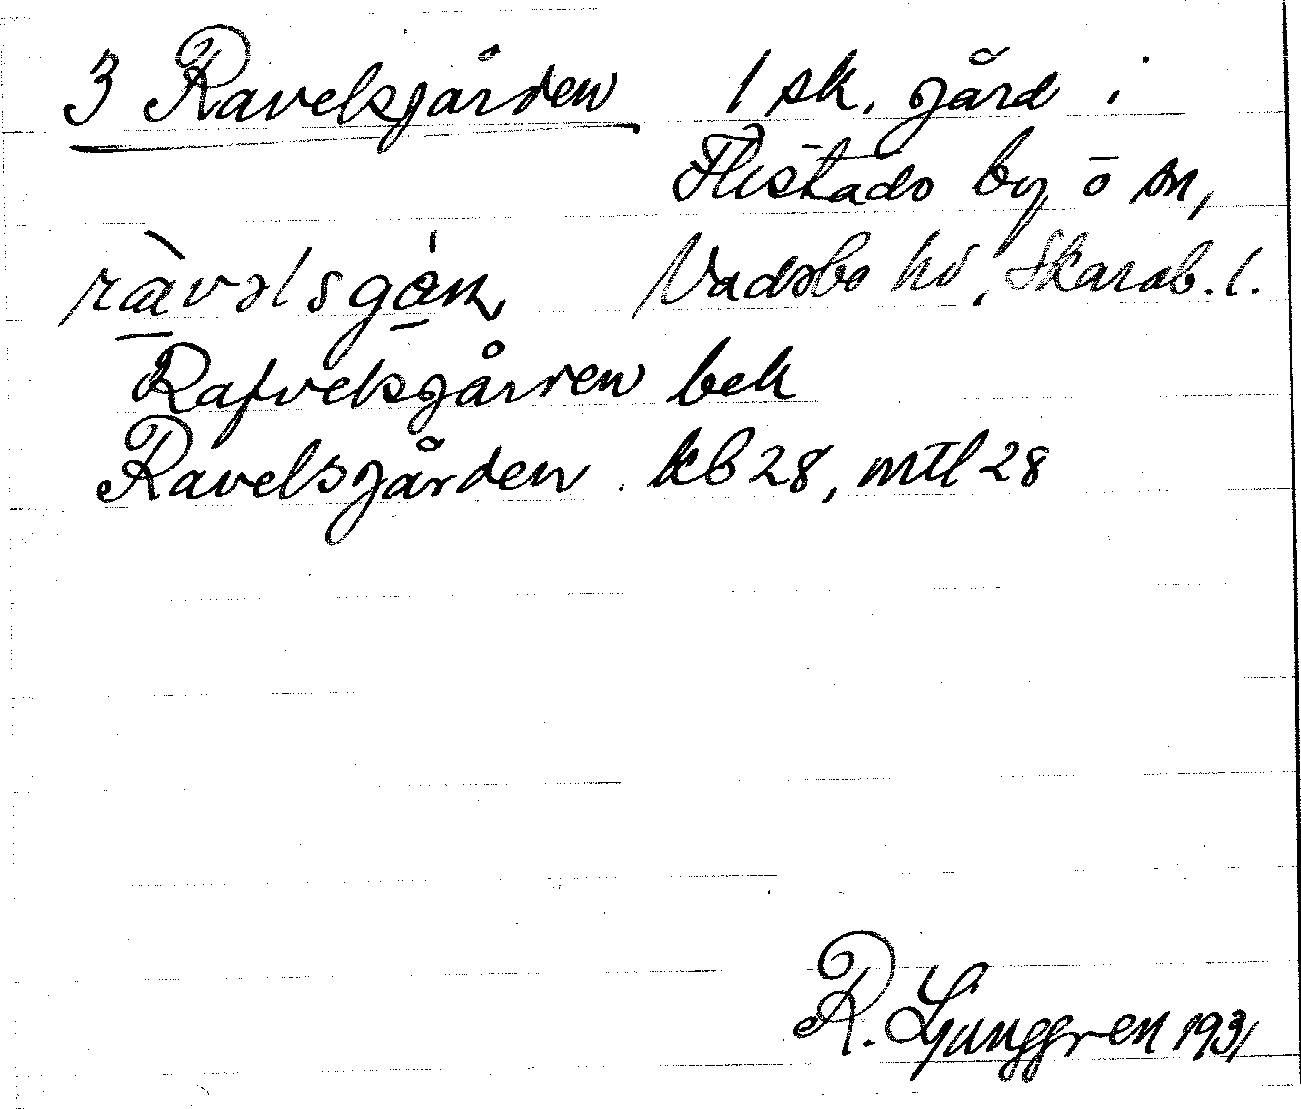 3 Ravelsgården 1 sk. gård i
Flistads by o sn,
ràvəlsgɑ́ɳ Vadsbo hd, Skarab. l.
Rafvelsgården bek
Ravelsgården kb 28, mtl 28
R. Ljunggren 1931